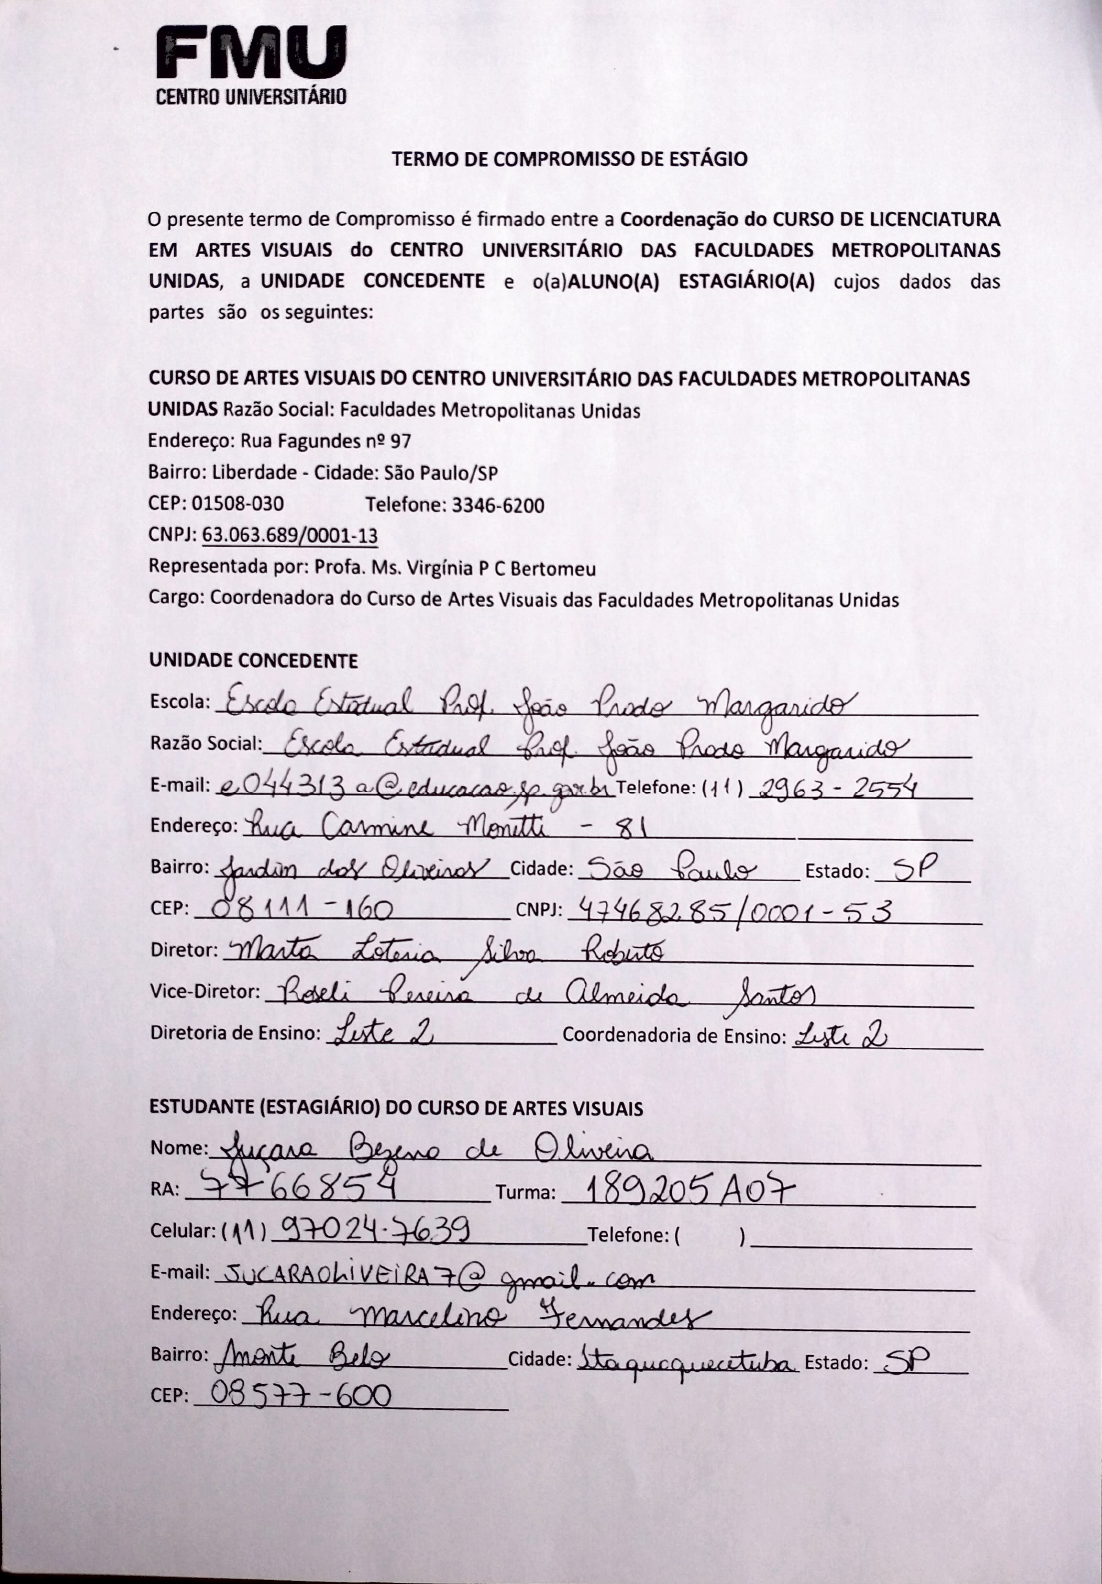 FMU
CENTRO UNIVERSITÁRIO
TERMO DE COMPROMISSO DE ESTÁGIO
O presente termo de Compromisso é firmado entre a Coordenação do CURSO DE LICENCIATURA
EM ARTES VISUAIS do CENTRO UNIVERSITÁRIO DAS FACULDADES METROPOLITANAS
UNIDAS, a UNIDADE CONCEDENTE e o(a)ALUNO(A) ESTAGIÁRIO(A) cujos dados das
partes são os seguintes:
CURSO DE ARTES VISUAIS DO CENTRO UNIVERSITÁRIO DAS FACULDADES METROPOLITANAS
UNIDAS Razão Social: Faculdades Metropolitanas Unidas
Endereço: Rua Fagundes nº 97
Bairro: Liberdade - Cidade: São Paulo/SP
CEP: 01508-030 Telefone: 3346-6200
CNPJ: 63.063.689/0001-13
Representada por: Profa. Ms. Virgínia P C Bertomeu
Cargo: Coordenadora do Curso de Artes Visuais das Faculdades Metropolitanas Unidas
UNIDADE CONCEDENTE
Escola: Escola Estadual Prof. João Prado Margarido
Razão Social: Escola Estadual Prof. João Prado Margarido
E-mail: e044313a@educacao.sp.gov.br Telefone: (11) 2963-2554
Endereço: Rua Carmine Monetti - 81
Bairro: Jardim dos Oliveiras Cidade: São Paulo Estado: SP
CEP: 08111-160 CNPJ: 47468285/0001-53
Diretor: Marta Loteria Silva Roberto
Vice-Diretor: Roseli Pereira de Almeida Santos
Diretoria de Ensino: Leste 2 Coordenadoria de Ensino: Leste 2
ESTUDANTE (ESTAGIÁRIO) DO CURSO DE ARTES VISUAIS
Nome: Juçara Bezerra de Oliveira
RA: 7766854 Turma: 189205A07
Celular: (11) 97024-7639 Telefone: ( )
E-mail: JUCARAOLIVEIRA7@gmail.com
Endereço: Rua Marcelino Fernandes
Bairro: Monte Belo Cidade: Itaquaquecetuba Estado: SP
CEP: 08577-600